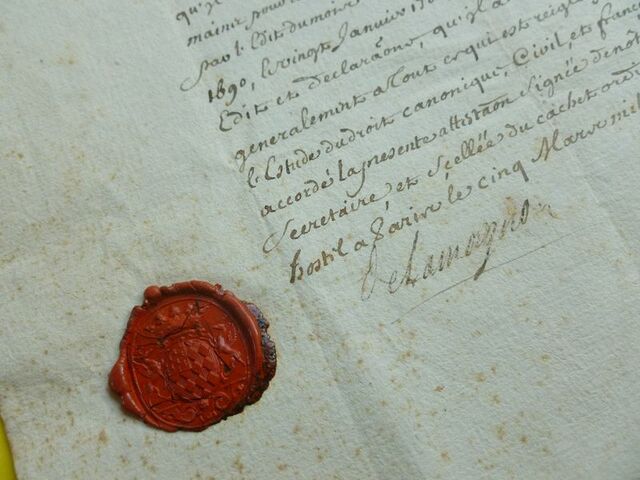 qu'il
mainir pour l
par l. Edit du mois
1690, le vingt Janvier 170
Edit et declaraõns, qu'il a
generalement a tout ce qui est reiglé
l'Estude du droit canonique, Civil, et franc
accordé la presente attistaõn signée de nôt
Secretaire, et Scellée du cachet ord
hostil a Paris le cinq Mars mil
Delamagnon